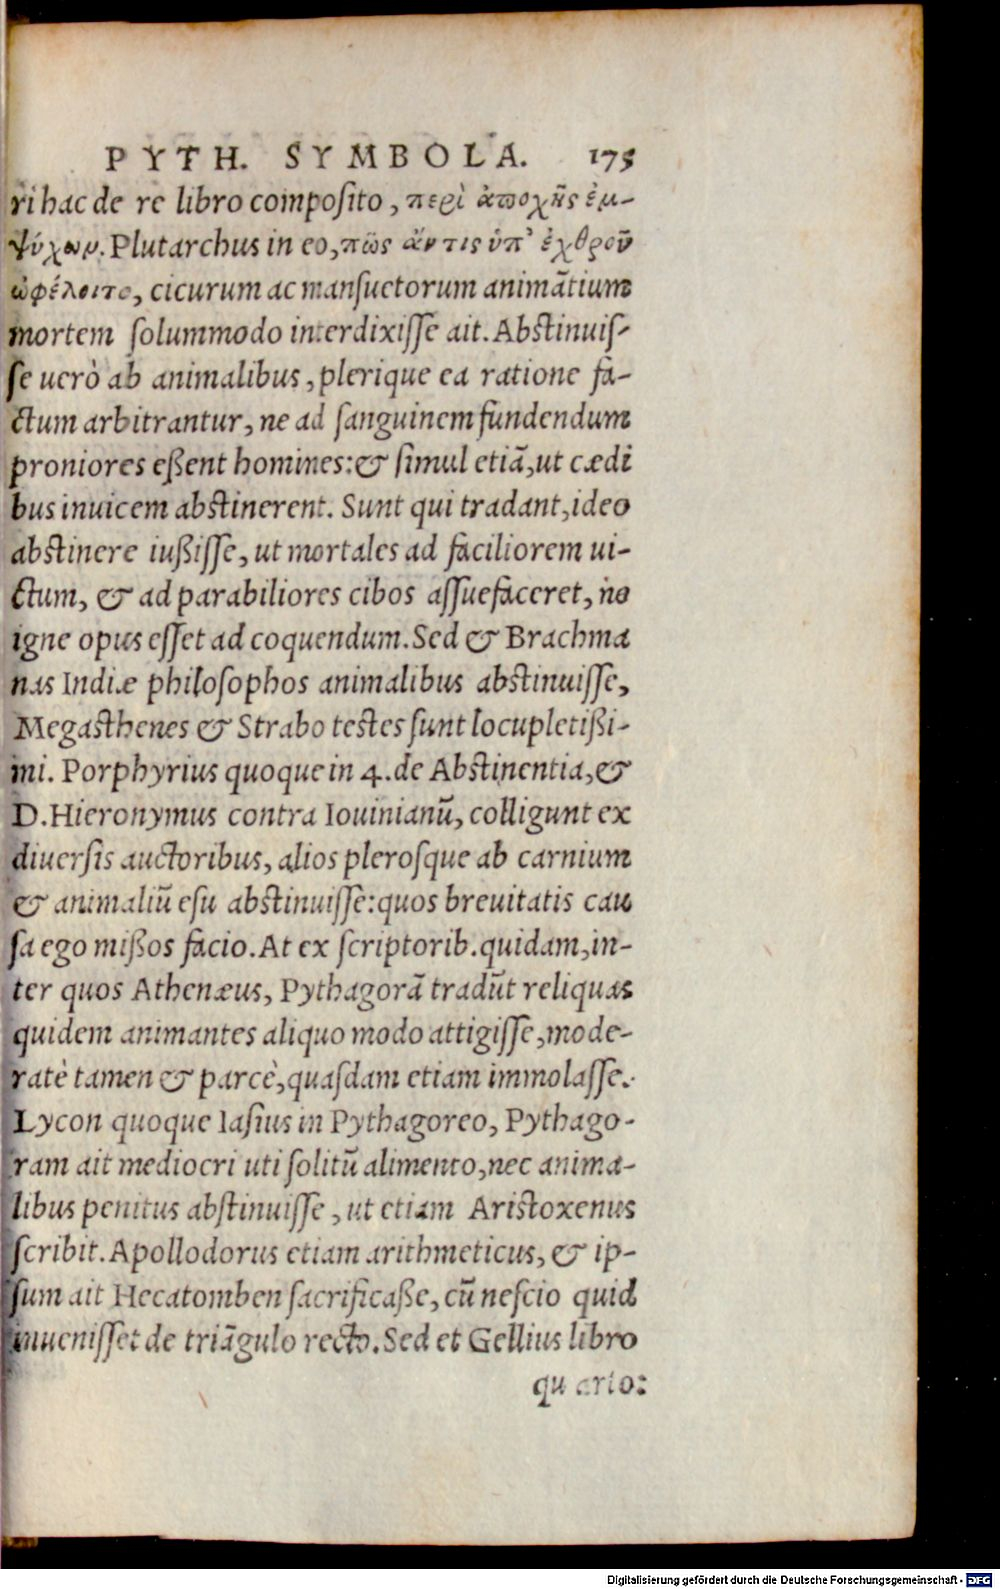 PYTH. SYMBOLA. 175
ri hac de re libro composito, περὶ ἀποχῆς ἐμ-
ψύχων. Plutarchus in eo, πῶς ἄν τις ὑπ' ἐχθροῦ
ὠφέλοιτο, cicurum ac mansuetorum animãtium
mortem solummodo interdixisse ait. Abstinuis-
se uerò ab animalibus, plerique ea ratione fa-
ctum arbitrantur, ne ad sanguinem fundendum
proniores eßent homines: & simul etiã, ut cædi
bus inuicem abstinerent. Sunt qui tradant, ideo
abstinere iußisse, ut mortales ad faciliorem ui-
ctum, & ad parabiliores cibos assuefaceret, ne
igne opus esset ad coquendum. Sed & Brachma
nas Indiæ philosophos animalibus abstinuisse,
Megasthenes & Strabo testes sunt locupletißi-
mi. Porphyrius quoque in 4. de Abstinentia, &
D. Hieronymus contra Iouinianũ, colligunt ex
diuersis auctoribus, alios plerosque ab carnium
& animaliũ esu abstinuisse: quos breuitatis cau
sa ego mißos facio. At ex scriptorib. quidam, in-
ter quos Athenæus, Pythagorã tradũt reliquas
quidem animantes aliquo modo attigisse, mode-
ratè tamen & parcè, quasdam etiam immolasse.
Lycon quoque Iasius in Pythagoreo, Pythago-
ram ait mediocri uti solitũ alimento, nec anima-
libus penitus abstinuisse, ut etiam Aristoxenus
scribit. Apollodorus etiam arithmeticus, & ip-
sum ait Hecatomben sacrificaße, cũ nescio quid
inuenisset de triãgulo recto. Sed et Gellius libro
quarto:
Digitalisierung gefördert durch die Deutsche Forschungsgemeinschaft - DFG